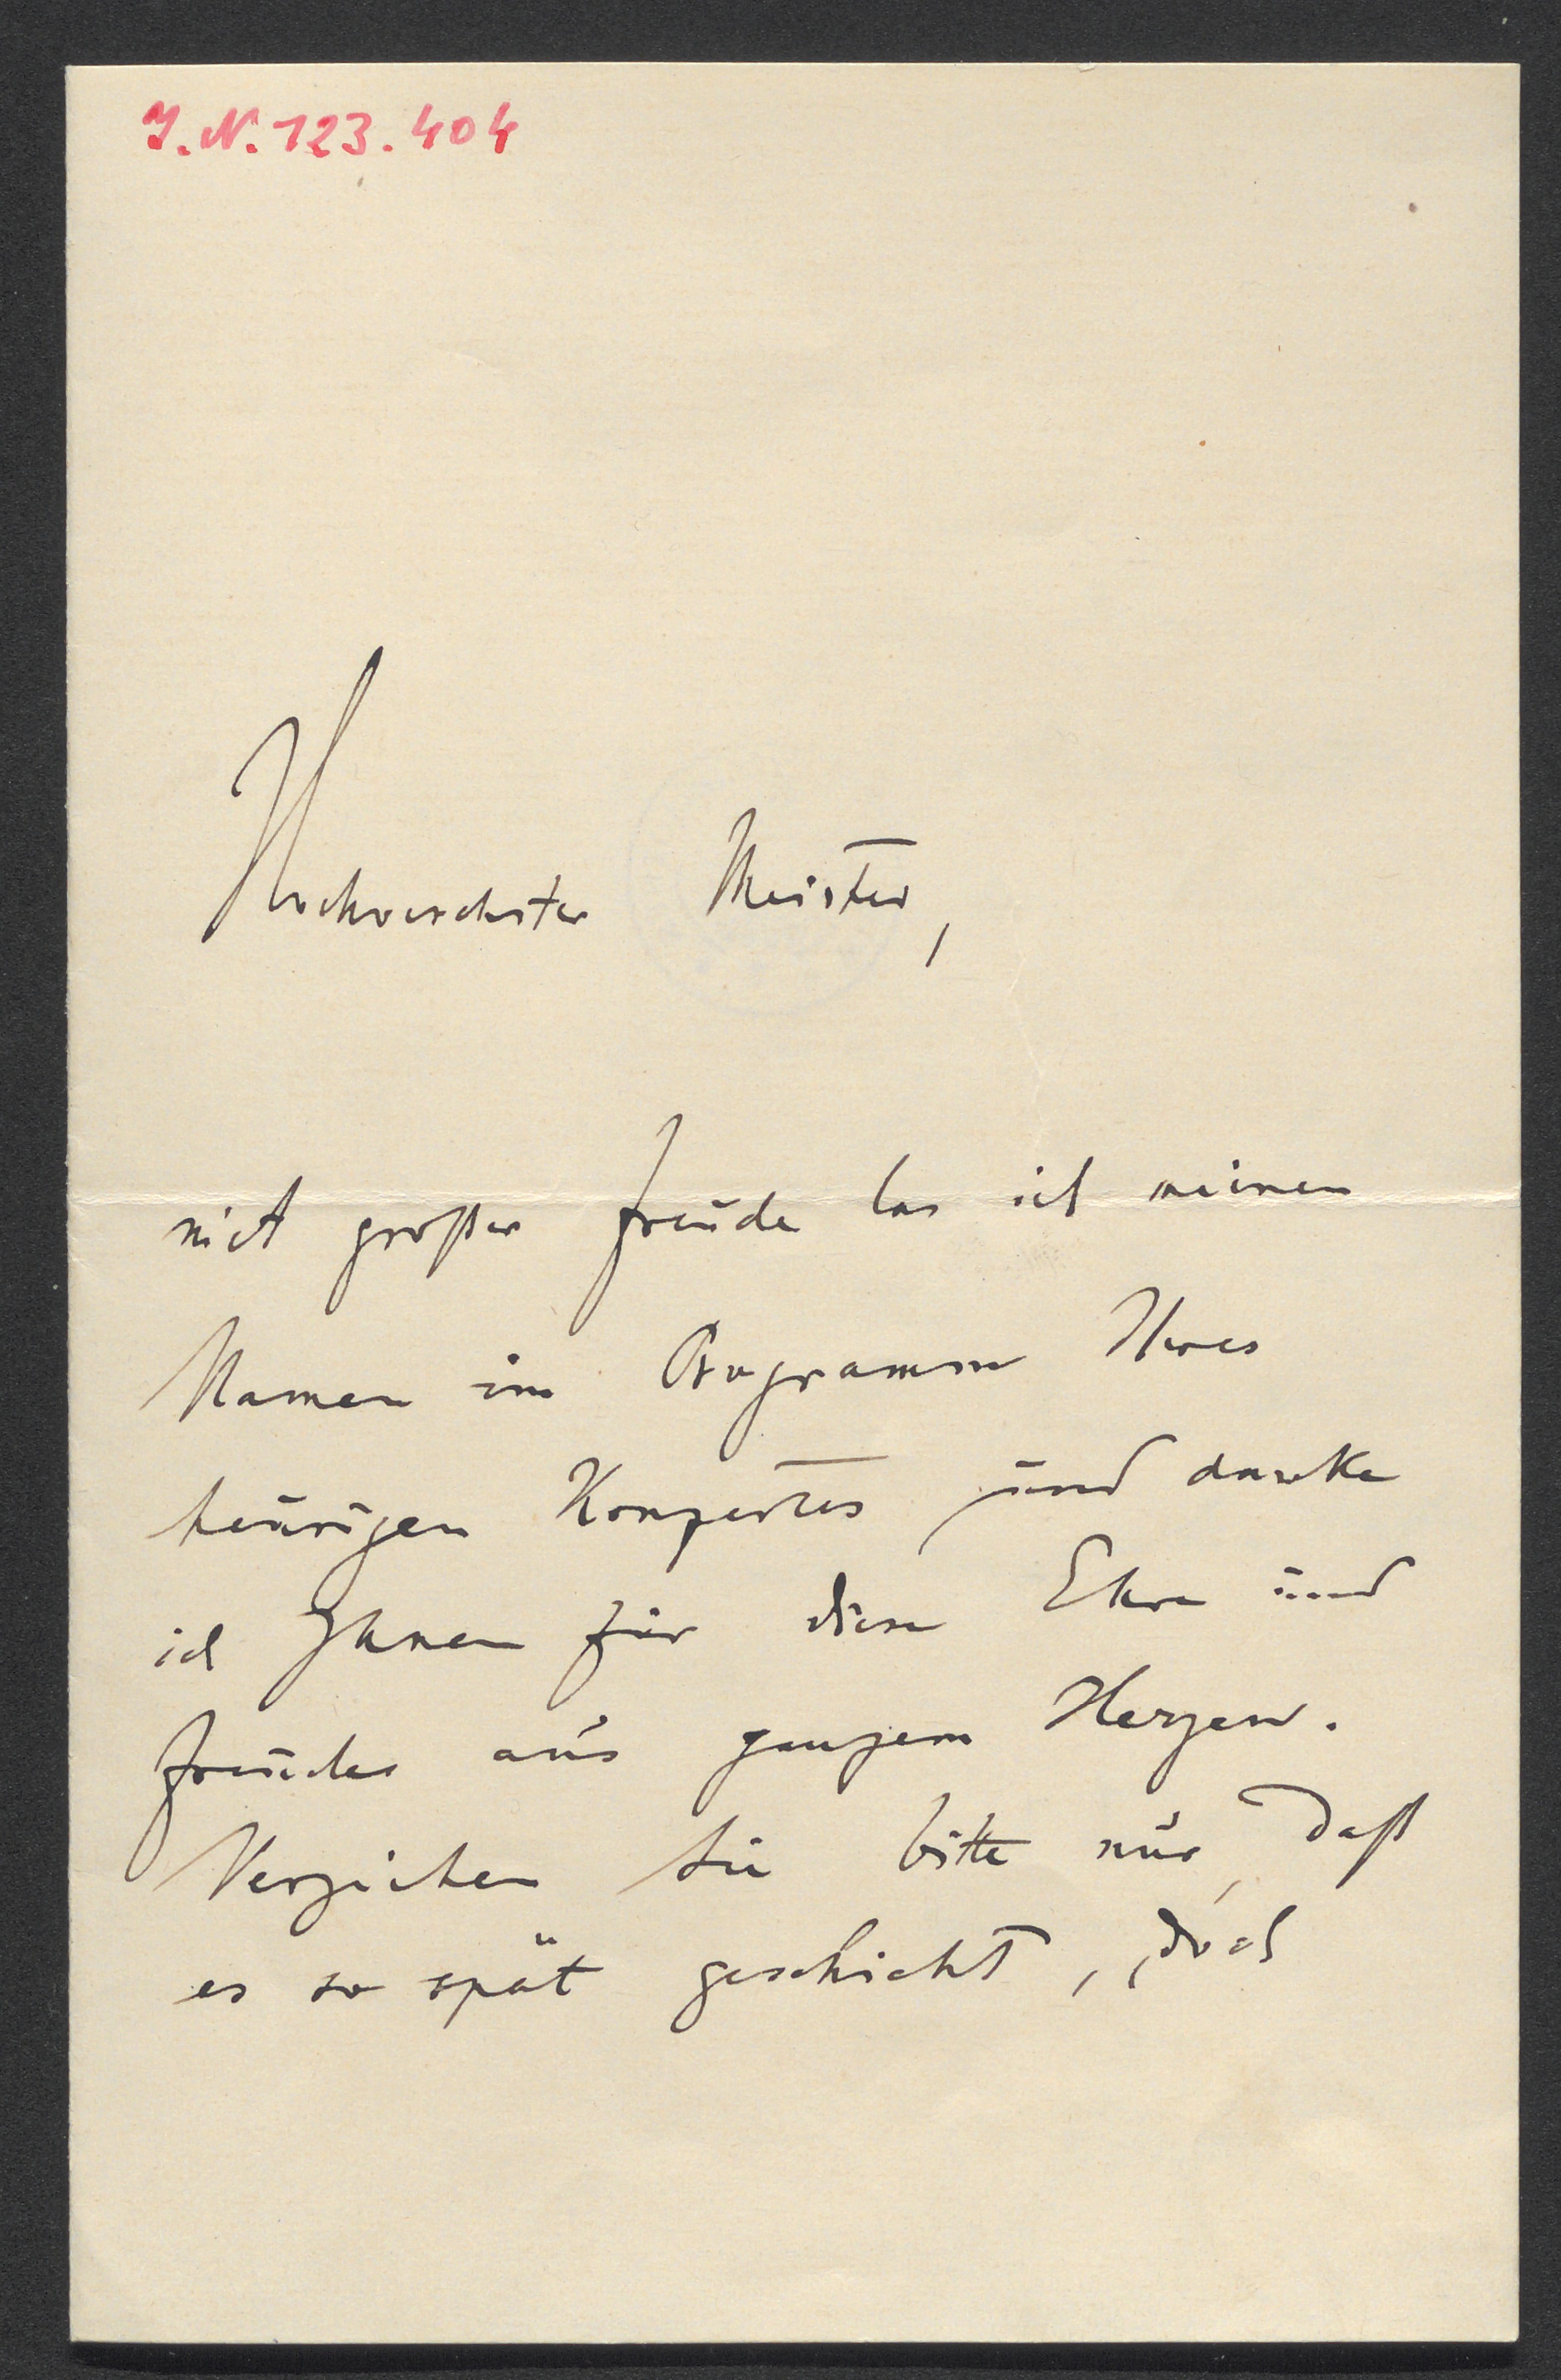 I.N. 123.404
Hochverehrter Meister,
mit großer Freude las ich meinen
Namen im Programm Ihres
heurigen Konzertes und danke
ich Ihnen für diese Ehre und
Freude aus ganzem Herzen.
Verzeihen Sie bitte nur, daß
es so spät geschieht, doch